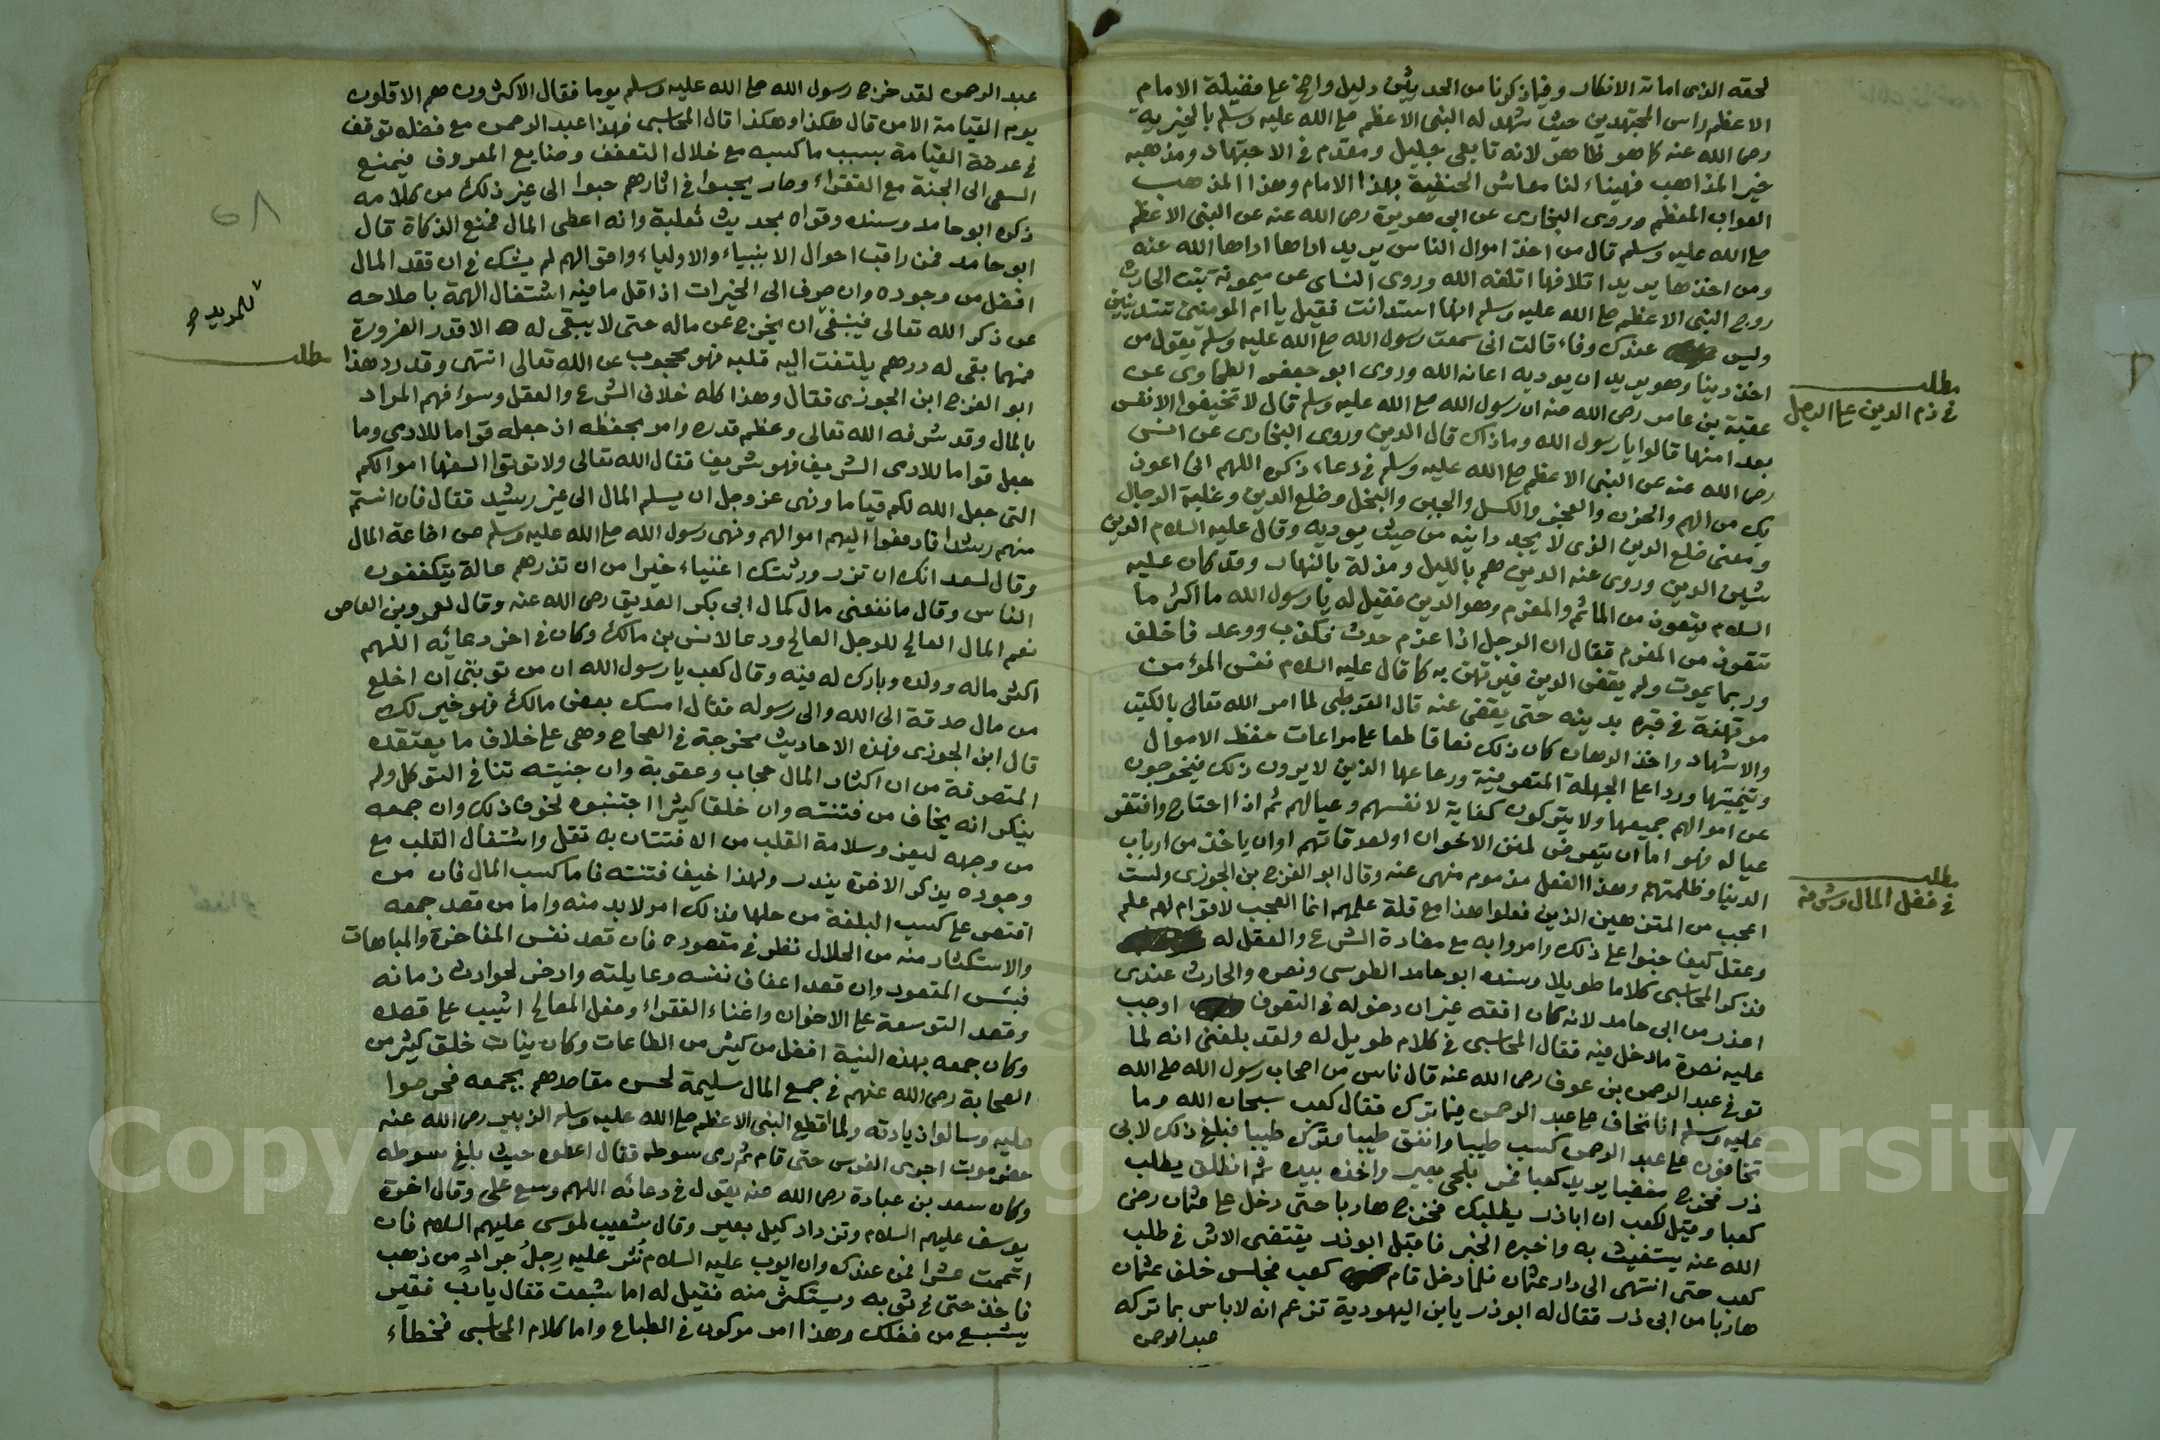 لحقه الذى اماته الانكار وفيما ذكرنا من الحديثين دليل واضح على فضيلة الامام
الاعظم راس المجتهدين حيث شهد له النبى الاعظم صلى الله عليه وسلم بالخيرية
رضى الله عنه كما هو ظاهر لانه تابعى جليل ومقدم فى الاجتهاد ومذهبه
خير المذاهب فهيناء لنا معاشر الحنفية بهذا الامام وهذا المذهب
الصواب المعظم وروى البخارى عن ابى هريرة رضى الله عنه عن النبى الاعظم
صلى الله عليه وسلم قال من اخذ اموال الناس يريد اداها اداها الله عنه
ومن اخذها يريد اتلافها اتلفه الله وروى النساى عن ميمونة بنت الحارث
زوج النبى الاعظم صلى الله عليه وسلم انها استدانت فقيل يا ام المومنين تستدينين
وليس عندك وفاء قالت انى سمعت رسول الله صلى الله عليه وسلم يقول من
اخذ دينا وهو يريد ان يوديه اعانه الله وروى ابو جعفر الطحاوى عن
عقبة بن عامر رضى الله عنه ان رسول الله صلى الله عليه وسلم قال لا تخيفوا الانفس
بعد امنها قالوا يا رسول الله وما ذاك قال الدين وروى البخارى عن انس
رضى الله عنه عن النبى الاعظم صلى الله عليه وسلم فى دعاء ذكره اللهم انى اعوذ
بك من الهم والحزن والعجز والكسل والجبن والبخل وضلع الدين وغلبة الرجال
ومعنى ضلع الدين الذى لا يجد داينه من حيث يوديه وقال عليه السلام الدين
شين الدين وروى عنه الدين هم بالليل ومذلة بالنهار وقد كان عليه
السلام يتعوذ من الماثم والمغرم وهو الدين فقيل له يا رسول الله ما اكثر ما
تتعوذ من المغرم فقال ان الرجل اذا غرم حدث فكذب ووعد فاخلف
وربما يموت ولم يقض الدين فيرتهن به كما قال عليه السلام نفس المؤمن
مرتهنة فى قبره بدينه حتى يقضى عنه قال القرطبى لما امر الله تعالى بالكتب
والاشهاد واخذ الرهان كان ذلك نصا قاطعا على مراعات حفظ الاموال
وتنميتها وردا على الجهلة المتصوفية ورعاعها الذين لا يرون ذلك فيخرجون
عن اموالهم جميعها ولا يتركون كفاية لانفسهم وعيالهم ثم اذا احتاج وافتقر
عياله فهو اما ان يتعرض لمنن الاخوان او لصدقاتهم او ان ياخذ من ارباب
الدنيا وظلمتهم وهذا الفعل مذموم منهى عنه وقال ابو الفرج بن الجوزى ولست
اعجب من المتزهدين الذين فعلوا هذا مع قلة علمهم انما العجب لاقوام لهم علم
وعقل كيف حثوا على ذلك وامروا به مع مضادة الشرع والعقل له
فذكر المحاسبى كلاما طويلا وسنده ابو حامد الطوسى ونصره والحارث عندى
اعذر من ابى حامد لانه كان افقه غير ان دخوله فى التصوف اوجب
عليه نصرة ما دخل فيه فقال المحاسبى فى كلام طويل له ولقد بلغنى انه لما
توفى عبد الرحمن بن عوف رضى الله عنه قال ناس من اصحاب رسول الله صلى الله
عليه وسلم انا نخاف على عبد الرحمن فيما ترك فقال كعب سبحان الله وما
تخافون على عبد الرحمن كسب طيبا وانفق طيبا وترك طيبا فبلغ ذلك لابى
ذر فخرج مغضبا يريد كعبا فمر بلحى بعير واخذه بيده ثم انطلق يطلب
كعبا وقيل لكعب ان اباذر يطلبك فخرج هاربا حتى دخل على عثمان رضى
الله عنه يستغيث به واخبره الخبر فاقبل ابوذر يقتفى الاثر فى طلب
كعب حتى انتهى الى دار عثمان فلما دخل قام كعب فجلس خلف عثمان
هاربا من ابى ذر فقال له ابوذر يا بن اليهودية تزعم انه لا باس بما تركه
عبد الرحمن
مطلب
فى ذم الدين على الرجل
مطلب
فى فضل المال وشرفه
عبد الرحمن لقد خرج رسول الله صلى الله عليه وسلم يوما فقال الاكثرون هم الاقلون
يوم القيامة الا من قال هكذا وهكذا قال المحاسبى فهذا عبد الرحمن مع فضله توقف
فى عرصة القيامة بسبب ما كسبه مع خلال التعفف وصنايع المعروف فيمنع
السعى الى الجنة مع الفقراء وصار يحبوا فى اثارهم حبوا الى غير ذلك من كلامه
ذكره ابو حامد وسنده وقواه بحديث ثعلبة وانه اعطى المال فمنع الزكاة قال
ابو حامد فمن راقب احوال الانبياء والاولياء واقوالهم لم يشك فى ان فقد المال
افضل من وجوده وان صرف الى الخيرات اذ اقل ما فيه اشتغال الهمة باصلاحه
عن ذكر الله تعالى فينبغى ان يخرج عن ماله حتى لا يبقى له الا قدر الضرورة
فمهما بقى له درهم يلتفت اليه قلبه فهو محجوب عن الله تعالى انتهى وقد رد هذا
ابو الفرج ابن الجوزى فقال وهذا كله خلاف الشرع والعقل وسوء فهم المراد
بالمال وقد شرفه الله تعالى وعظم قدره وامر بحفظه اذ جعله قواما للادمى وما
جعل قواما للادمى الشريف فهو شريف فقال الله تعالى ولا توتوا السفها اموالكم
التى جعل الله لكم قياما ونهى عز وجل ان يسلم المال الى غير رشيد فقال فان انستم
منهم رشدا فادفعوا اليهم اموالهم ونهى رسول الله صلى الله عليه وسلم عن اضاعة المال
وقال لسعد انك ان تزر ورثتك اغنياء خيرا من ان تذرهم عالة يتكففون
الناس وقال ما نفعنى مال كمال ابى بكر الصديق رضى الله عنه وقال لعمرو بن العاص
نعم المال الصالح للرجل الصالح ودعا لانس بن مالك وكان فى اخر دعائه اللهم
اكثر ماله وولده وبارك له فيه وقال كعب يا رسول الله ان من توبتى ان اخلع
من مال صدقة الى الله والى رسوله فقال امسك بعض مالك فهو خير لك
قال ابن الجوزى فهذه الاحاديث مخرجة فى الصحاح وهى على خلاف ما يعتقده
المتصوفة من ان اكثار المال حجاب وعقوبة وان حبسه تنافى التوكل ولم
ينكر انه يخاف من فتنته وان خلقا كثيرا اجتنبوه لخوف ذلك وان جمعه
من وجهه ليعز وسلامة القلب من الافتتان به تقل واشتغال القلب مع
وجوده بذكر الاخرة يندر ولهذا خيف فتنته فاما كسب المال فان من
اقتصر على كسب البلغة من حلها فذلك امر لا بد منه واما من قصد جمعه
والاستكثار منه من الحلال نظر فى مقصوده فان قصد نفس المفاخرة والمباهات
فبئس المقصود وان قصد اعفاف نفسه وعايلته وادخر لحوادث زمانه
وقصد التوسعة على الاخوان واغناء الفقراء وفعل المصالح اثيب على قصده
وكان جمعه بهذه النية افضل من كثير من الطاعات وكان نيات خلق كثير من
الصحابة رضى الله عنهم فى جمع المال سليمة لحسن مقاصدهم بجمعه فحرصوا
عليه وسالوا زيادته ولما اقطع النبى الاعظم صلى الله عليه وسلم الزبير رضى الله عنه
حضر موت اجرى الفرس حتى قام ثم رمى سوطه فقال اعطوه حيث بلغ سوطه
وكان سعد بن عبادة رضى الله عنه يقول فى دعائه اللهم وسع على وقال اخوة
يوسف عليهم السلام ونزداد كيل بعير وقال شعيب لموسى عليهم السلام فان
اتممت عشرا فمن عندك وان ايوب عليه السلام نُثر عليه رِجلُ جرادٍ من ذهب
فاخذ حتى فى ثوبه ويستكثر منه فقيل له اما شبعت فقال يا رب فقير
يشبع من فضلك وهذا امر مركون فى الطباع واما كلام المحاسبى فخطاء
٥٨
مطلب
Copyright © King Saud University